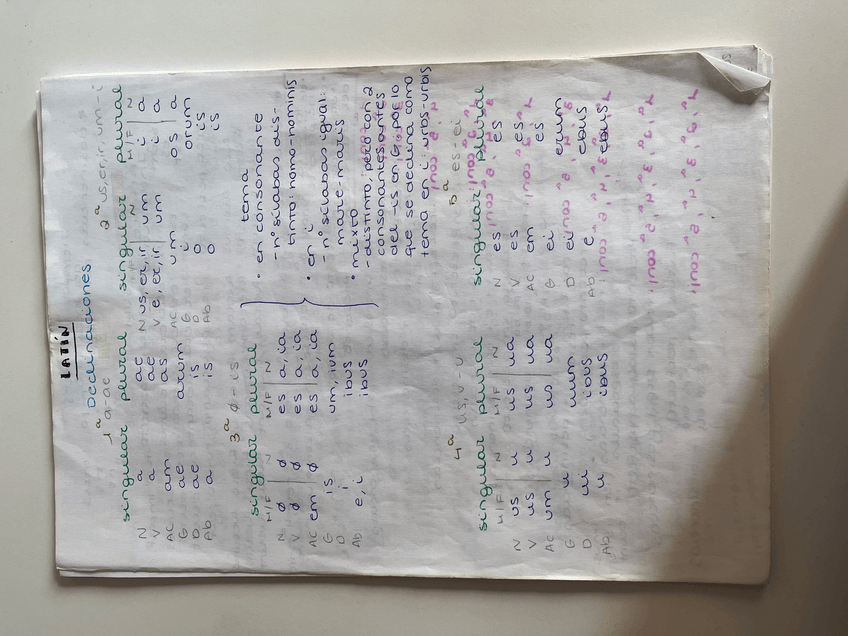 LATÍN
Declinaciones
1ª a-ae
singular plural
N a ae
V a ae
AC am as
G ae arum
D ae is
Ab a is
2ª us, er, ir, um-i
singular plural
N M/F N
N us, er, ir um i a
V e, er, ir um i a
AC um os a
G i orum
D o is
Ab o is
3ª ø-is
singular plural
M/F N M/F N
N ø ø es a, ia
V ø ø es a, ia
AC em ø es a, ia
G is um, ium
D i ibus
Ab e, i ibus
tema
• en consonante
- nº sílabas dis-
tinto: homo-hominis
• en i
- nº sílabas igual:
mare-maris
• mixto
- distinto, pero con 2
consonantes antes
del -is en G por lo
que se declina como
tema en i: urbs-urbis
4ª us, u-u
singular plural
M/F N M/F N
N us u us ua
V us u us ua
AC um u us ua
G u uum
D ui ibus
Ab u ibus
5ª es-ei
singular plural
N es es
V es es
AC em es
G ei erum
D ei ebus
Ab e ebus